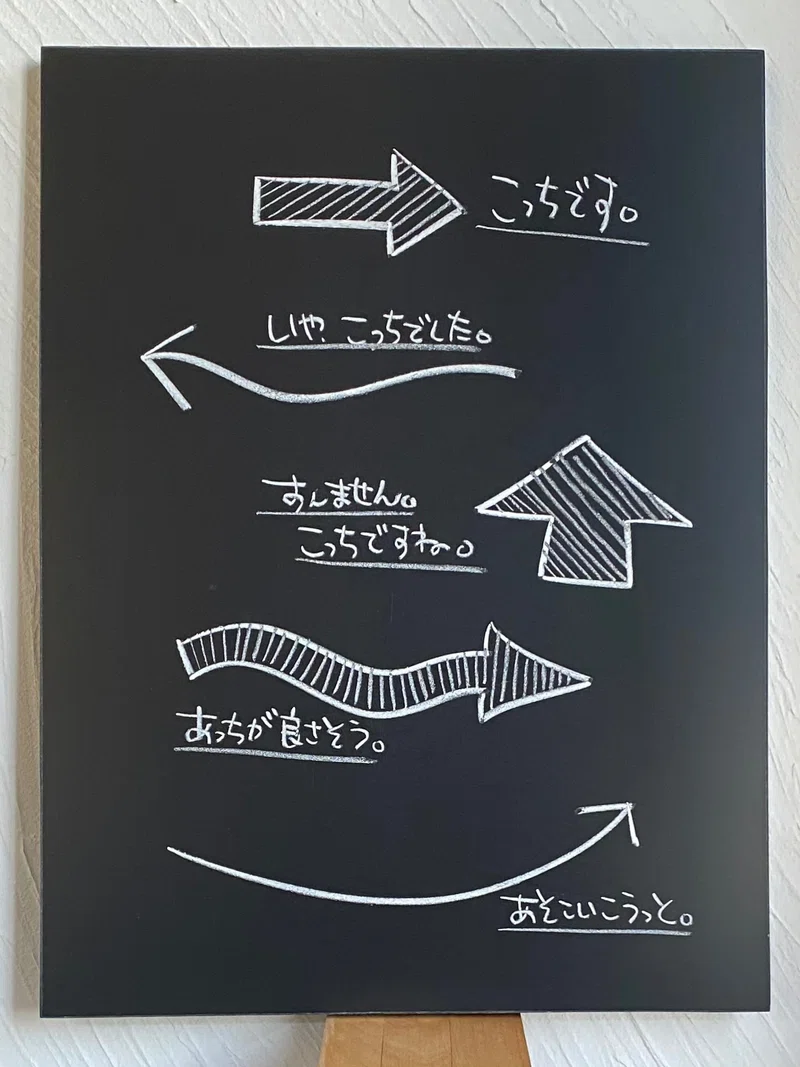 こっちです。
いや、こっちでした。
すんません。
こっちですね。
あっちが良さそう。
あそこいこうっと。